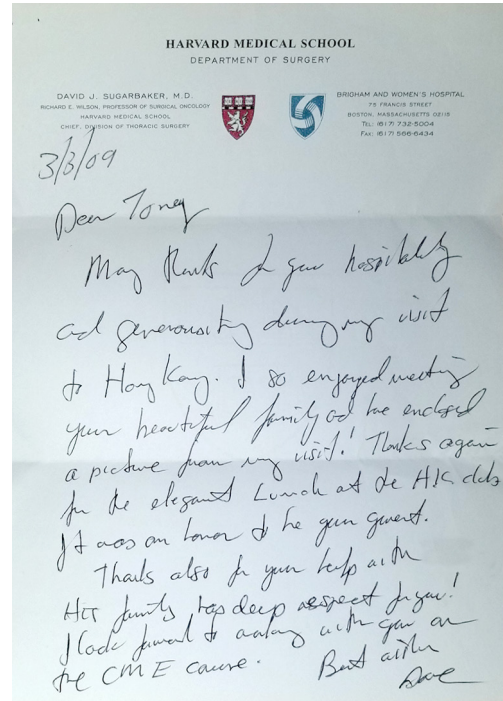 HARVARD MEDICAL SCHOOL
DEPARTMENT OF SURGERY
DAVID J. SUGARBAKER, M.D.
RICHARD E. WILSON, PROFESSOR OF SURGICAL ONCOLOGY
HARVARD MEDICAL SCHOOL
CHIEF, DIVISION OF THORACIC SURGERY
BRIGHAM AND WOMEN'S HOSPITAL
75 FRANCIS STREET
BOSTON, MASSACHUSETTS 02115
TEL: (617) 732-5004
FAX: (617) 566-6434
3/3/09
Dear Toney
Many thanks for your hospitality
and generousity during my visit
to Hong Kong. I so enjoyed meeting
your beautiful family and have enclosed
a picture from my visit! Thanks again
for the elegant Lunch at the HK club
It was an honor to be your guest.
Thanks also for your help with
family has deep respect for you!
I look forward to working with you on
the CME course. Best wishes
Dave